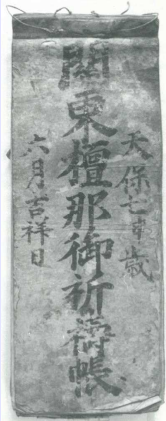 天保七申歳
関東檀那御祈禱帳
六月吉祥日